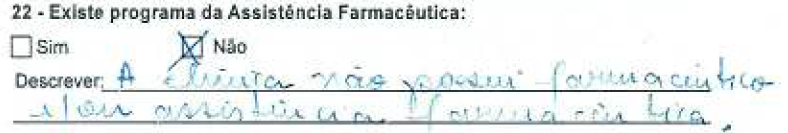 22 - Existe programa da Assistência Farmacêutica:
Sim Não
Descrever: A clínica não possui farmacêutico
e/ou assistência farmacêutica.